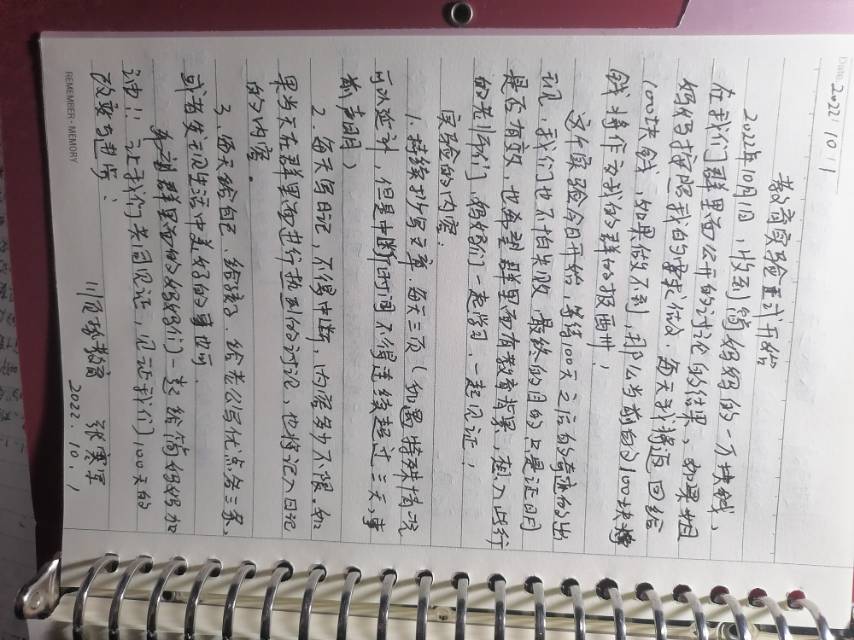 Date: 2022.10.1
教育实验正式开始
2022年10月1日,收到简妈妈的一万块钱,
在我们群里面公开的讨论的结果,如果姐
妈妈按照我的要求做到,每天我将返回给
100块钱,如果做不到,那么当前的100块
钱将作为我的群的报酬!
这个实验今日开始,等待100天之后的奇迹的出
现,我们也不怕失败,最终的目的只是证明
是否有效,也希望群里面有教育背景,想入此行
的老师们,妈妈们一起学习,一起见证!
实验的内容:
1、持续抄写文章,每天三页(如遇特殊情况
可以延计,但是中断时间不得连续超过三天,事
前声明)
2、每天写日记,不得中断,内容多少不限,如
果当天在群里面进行执到的讨论,也将记入日记
的内容。
3、每天给自己、给孩子、给老公写优点各三条,
或者发现生活中美好的事物。
群里面的妈妈们一起给简妈妈加
油!!让我们共同见证,见证我们100天的
改变与进步!
教育 张寒军
2022.10.1
REMEMBER·MEMORY